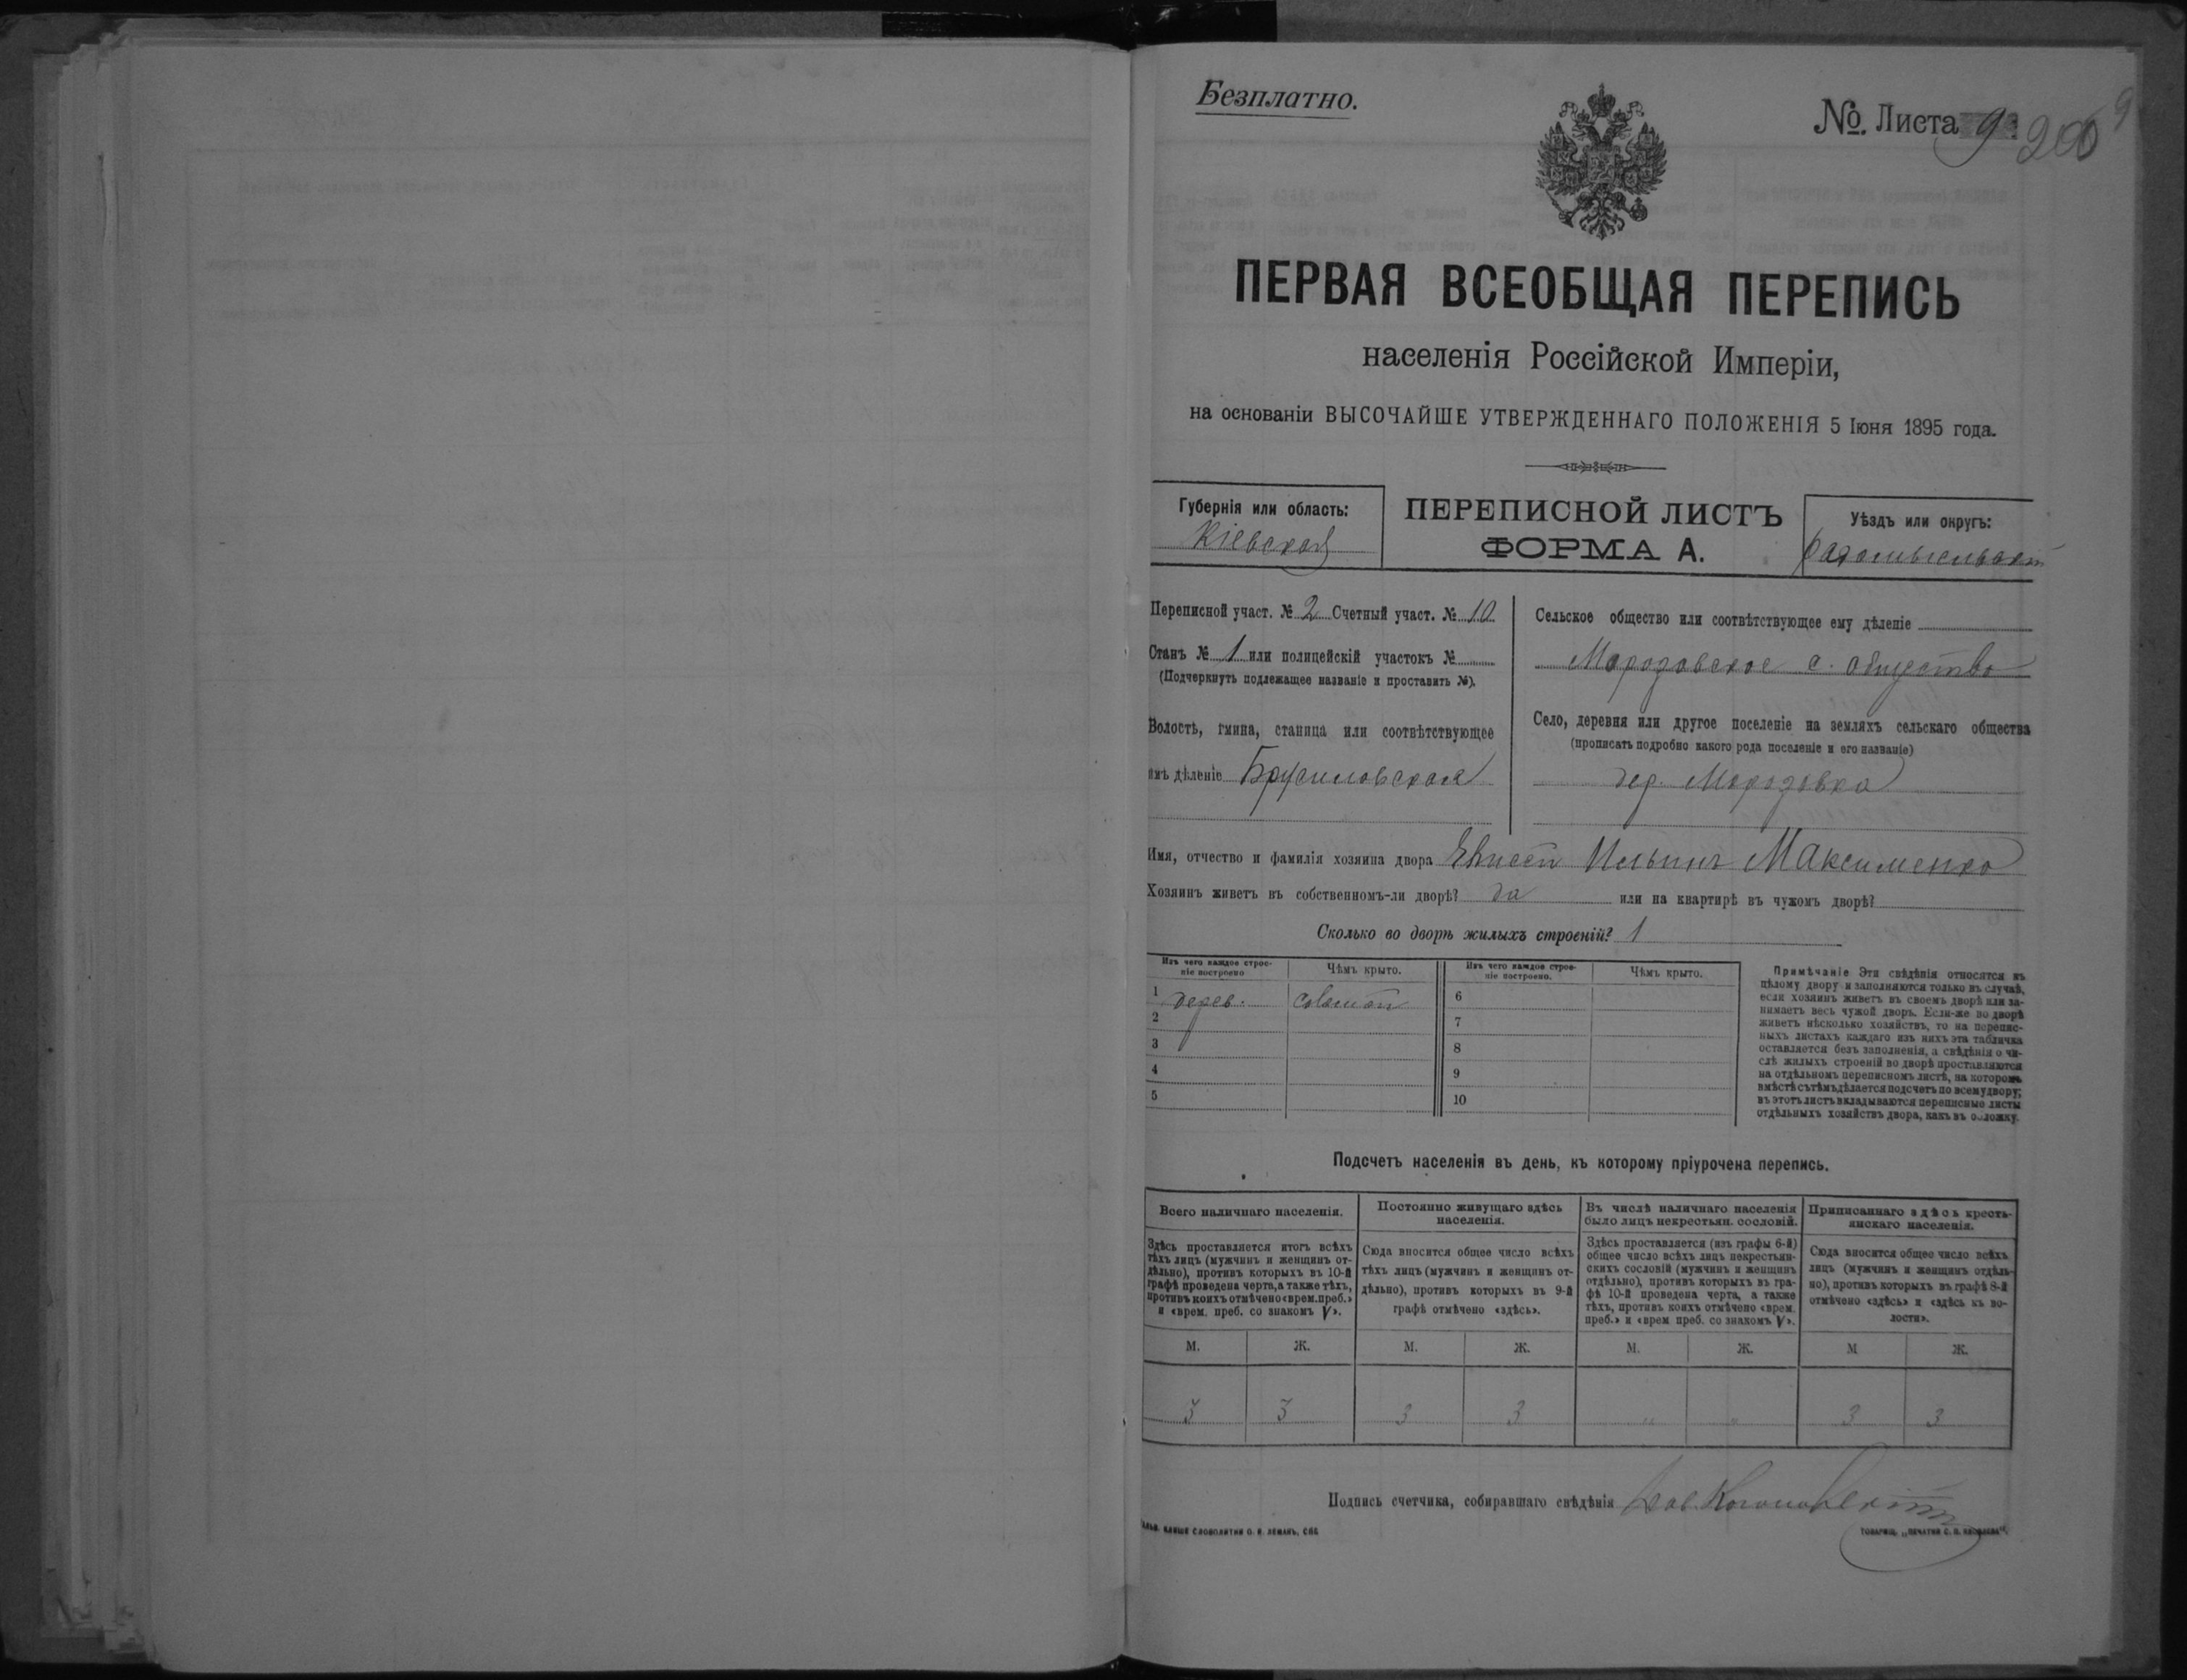 Безплатно.
№. Листа 9 200 9
ПЕРВАЯ ВСЕОБЩАЯ ПЕРЕПИСЬ
населенія Россійской Имперіи,
на основаніи ВЫСОЧАЙШЕ УТВЕРЖДЕННАГО ПОЛОЖЕНІЯ 5 Іюня 1895 года.
Губернія или область:
Кіевская
ПЕРЕПИСНОЙ ЛИСТЪ
ФОРМА А.
Уѣздъ или округъ:
Переписной участ. № 2 Счетный участ. № 10
Станъ № 1 или полицейскій участокъ №
(Подчеркнуть подлежащее названіе и проставить №).
Волость, гмина, станица или соотвѣтствующее
имъ дѣленіе Брусиловская
Сельское общество или соотвѣтствующее ему дѣленіе
Морозовское с. общество
Село, деревня или другое поселеніе на земляхъ сельскаго общества
(прописать подробно какого рода поселеніе и его названіе)
дер. Морозовка
Имя, отчество и фамилія хозяина двора Ильинъ Максименко
Хозяинъ живетъ въ собственномъ-ли дворѣ? да или на квартирѣ въ чужомъ дворѣ?
Сколько во дворѣ жилыхъ строеній? 1
Изъ чего каждое строе-
ніе построено
Чѣмъ крыто.
Изъ чего каждое строе-
ніе построено.
Чѣмъ крыто.
1 дерев. соломой 6
2 7
3 8
4 9
5 10
Примѣчаніе Эти свѣдѣнія относятся къ
цѣлому двору и заполняются только въ случаѣ,
если хозяинъ живетъ въ своемъ дворѣ или за-
нимаетъ весь чужой дворъ. Если-же во дворѣ
живетъ нѣсколько хозяйствъ, то на перепис-
ныхъ листахъ каждаго изъ нихъ эта табличка
оставляется безъ заполненія, а свѣдѣнія о чи-
слѣ жилыхъ строеній во дворѣ проставляются
на отдѣльномъ переписномъ листѣ, на которомъ
вмѣстѣ съ тѣмъ дѣлается подсчетъ по всему двору;
въ этотъ листъ вкладываются переписные листы
отдѣльныхъ хозяйствъ двора, какъ въ обложку.
Подсчетъ населенія въ день, къ которому пріурочена перепись.
Всего наличнаго населенія.
Постоянно живущаго здѣсь
населенія.
Въ числѣ наличнаго населенія
было лицъ некрестьян. сословій.
Приписаннаго здѣсь кресть-
янскаго населенія.
Здѣсь проставляется итогъ всѣхъ
тѣхъ лицъ (мужчинъ и женщинъ от-
дѣльно), противъ которыхъ въ 10-й
графѣ проведена черта, а также тѣхъ,
противъ коихъ отмѣчено «врем. преб.»
и «врем. преб. со знакомъ V».
Сюда вносится общее число всѣхъ
тѣхъ лицъ (мужчинъ и женщинъ от-
дѣльно), противъ которыхъ въ 9-й
графѣ отмѣчено «здѣсь».
Здѣсь проставляется (изъ графы 6-й)
общее число всѣхъ лицъ некрестьян-
скихъ сословій (мужчинъ и женщинъ
отдѣльно), противъ которыхъ въ гра-
фѣ 10-й проведена черта, а также
тѣхъ, противъ коихъ отмѣчено «врем.
преб.» и «врем преб. со знакомъ V».
Сюда вносится общее число всѣхъ
лицъ (мужчинъ и женщинъ отдѣль-
но), противъ которыхъ въ графѣ 8-й
отмѣчено «здѣсь» и «здѣсь къ во-
лости».
М. Ж. М. Ж. М. Ж. М Ж.
3 3 3 3 " " 3 3
Подпись счетчика, собиравшаго свѣдѣнія